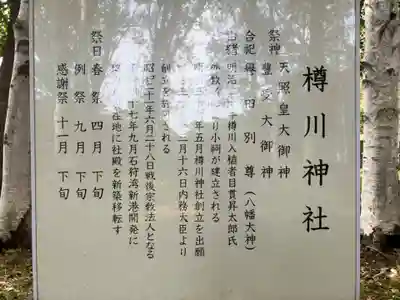 樽川神社
祭神 天照皇大御神
豊受大御神
合祀 誉田別尊（八幡大神）
明治 樽川入植者目貫昇太郎氏
り小祠が建立される
年五月樽川神社創立を出願
二月十六日内務大臣より
創立を許可される
昭和二十一年六月二十八日戦後宗教法人となる
十七年九月石狩湾新港開発に
在地に社殿を新築移転す
祭日 春祭 四月下旬
例祭 九月下旬
感謝祭 十一月下旬